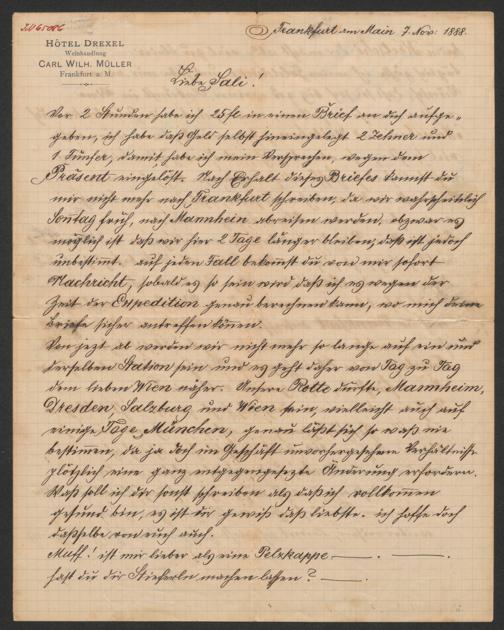 HÔTEL DREXEL
Weinhandlung
CARL WILH. MÜLLER
Frankfurt a. M.
Frankfurt am Main 7. Nov. 1888.
Liebe Sali!
Vor 2 Stunden habe ich 25 fl in einen Brief an dich aufge-
geben, ich habe daß Geld selbst hineingelegt 2 Zehner und
1 Fünfer, damit habe ich mein Versprechen, wegen dem
Präsent eingelößt. Nach Erhalt dieses Briefes kannst du
mir nicht mehr nach Frankfurt schreiben, da wir wahrscheinlich
Sontag früh, nach Mannheim abreisen werden, obzwar es
möglich ist daß wir hier 2 Tage länger bleiben, daß ist jedoch
unbestimt. auf jeden Fall bekomst du von mir sofort
Nachricht, sobald es so sein wird daß ich es wegen der
Zeit der Expedition genau berechnen kann, wo mich deine
Briefe sicher antreffen könen.
Von jezt ab werden wir nicht mehr so lange auf ein und
derselben Station sein und es geht daher von Tag zu Tag
dem lieben Wien näher. Unsere Rotte dürfte, Mannheim,
Dresden, Salzburg und Wien sein, vielleicht auch auf
einige Tage München, genau läßt sich so waß nie
bestimen, da ja doch im Geschäft unvorhergesehene Verhältniße
plötzlich eine ganz entgegengesezte Änderung erfordern.
Waß soll ich dir sonst schreiben als daß ich vollkomen
gesund bin, es ist dir gewiß daß liebste. ich hoffe doch
daßselbe von euch auch.
Muff! ist mir lieber als eine Pelzkappe —. —.
hast du dir Stieferln machen lassen? —.